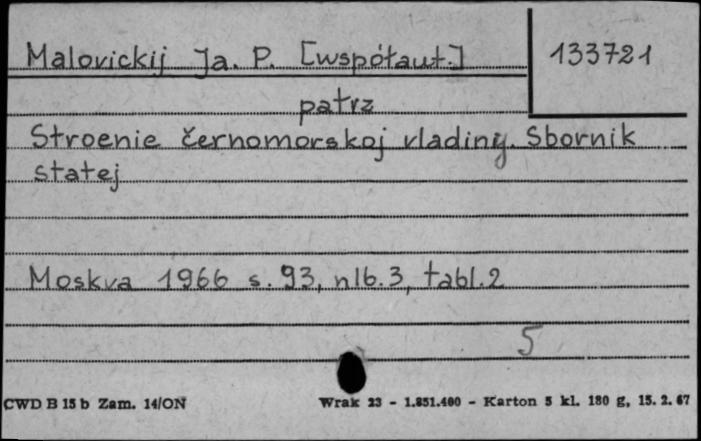 Malovickij Ja. P. [współaut.]
133721
patrz
Stroenie černomorskoj vladiny. Sbornik
statej
Moskva 1966 s. 93, nlb. 3, tabl. 2
5
CWD B 15 b Zam. 14/ON
Wrak 23 - 1.851.400 - Karton 5 kl. 180 g, 15. 2. 67